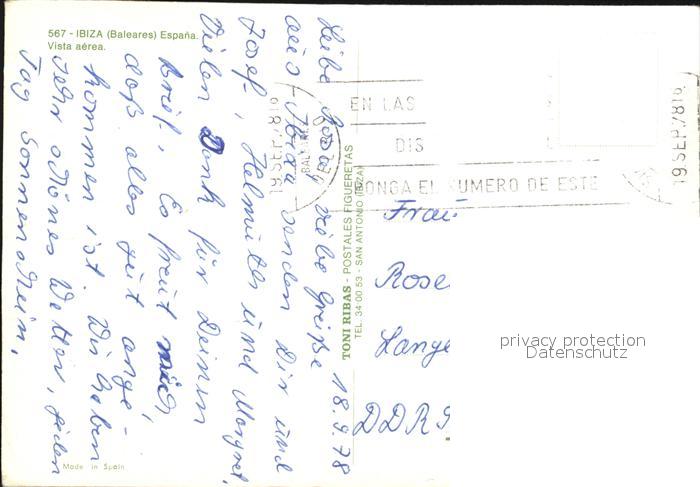 567 - IBIZA (Baleares) España.
Vista aérea.
18.9.78
Liebe Rosel, liebe Grüße
aus Ibiza senden Dir und
Josef, Helmut und Margret.
Vielen Dank für Deinen
Brief. Es freut mich,
daß alles gut ange-
kommen ist. Wir haben
sehr schönes Wetter, jeden
Tag Sonnenschein.
Made in Spain
TONI RIBAS - POSTALES FIGUERETAS
TEL. 34 00 53 - SAN ANTONIO (IBIZA)
19 SEP. 78 16
EN LAS
DIS
PONGA EL NUMERO DE ESTE
19 SEP. 78 16
Frau
Rose
Lange
DDR 9
privacy protection
Datenschutz